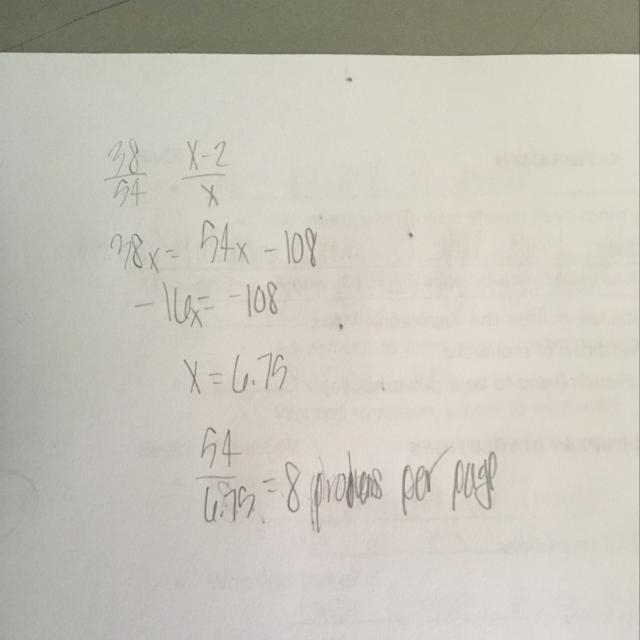 38/54 x-2/x
38x = 54x - 108
-16x = -108
x = 6.75
54/6.75 = 8 problems per page